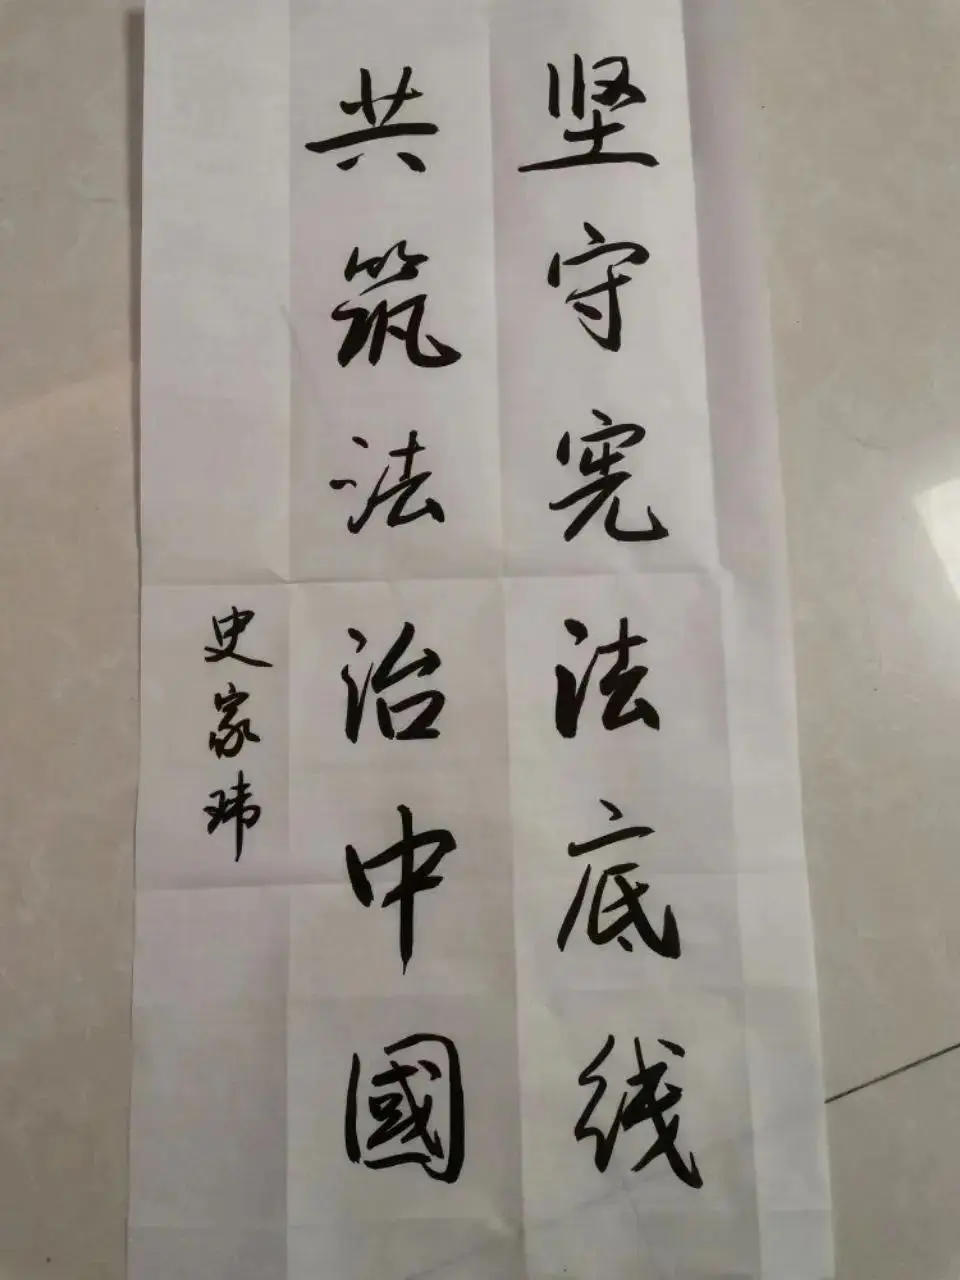 坚守宪法底线
共筑法治中國
史家玮